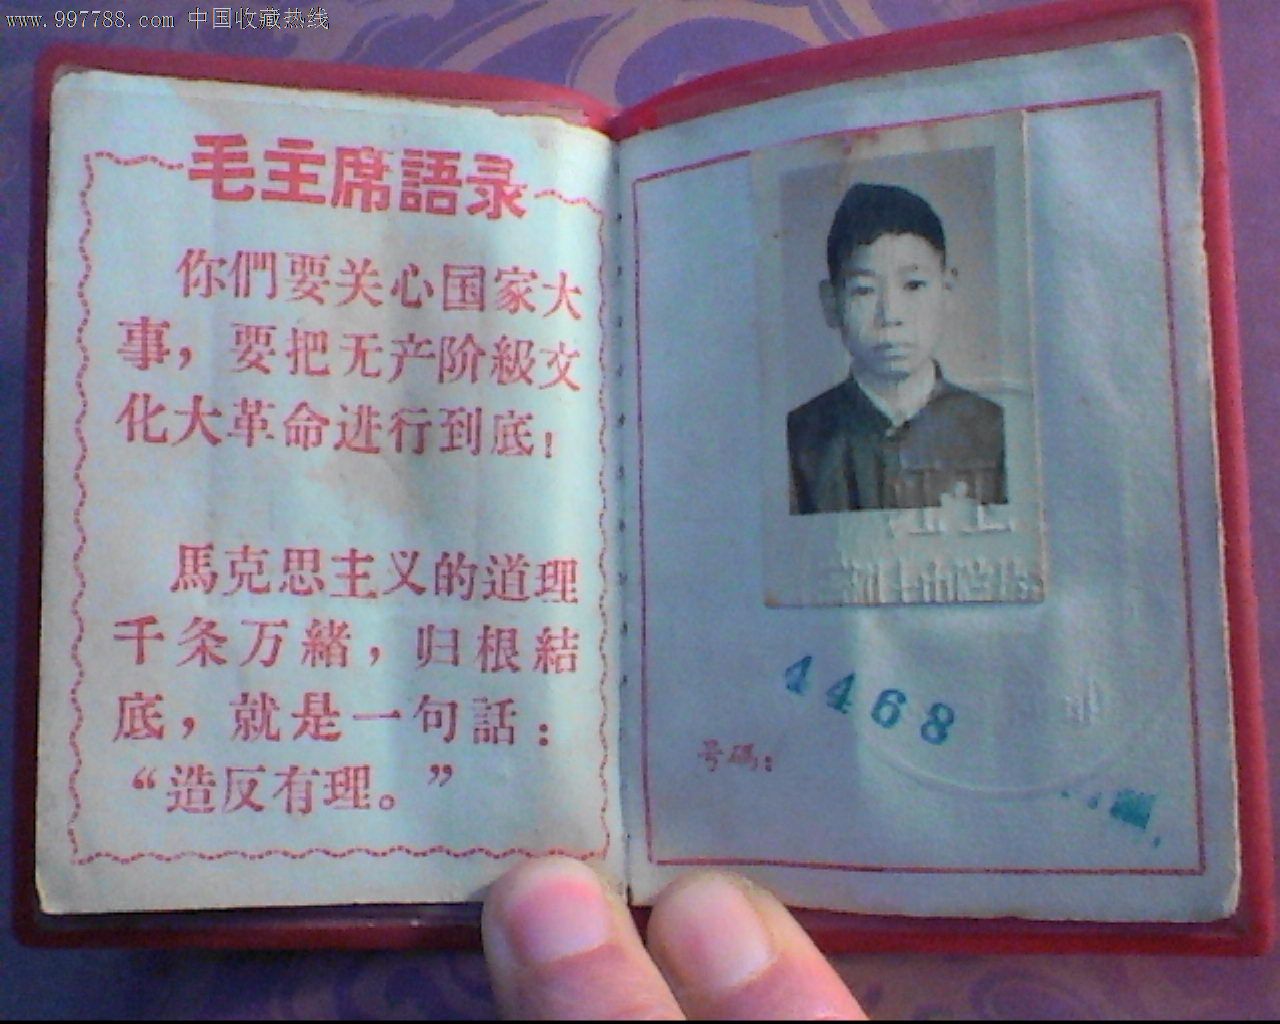 www.997788.com 中国收藏热线
毛主席語录
你們要关心国家大
事，要把无产阶級文
化大革命进行到底！
馬克思主义的道理
千条万緒，归根結
底，就是一句話：
“造反有理。”
4468
号碼：